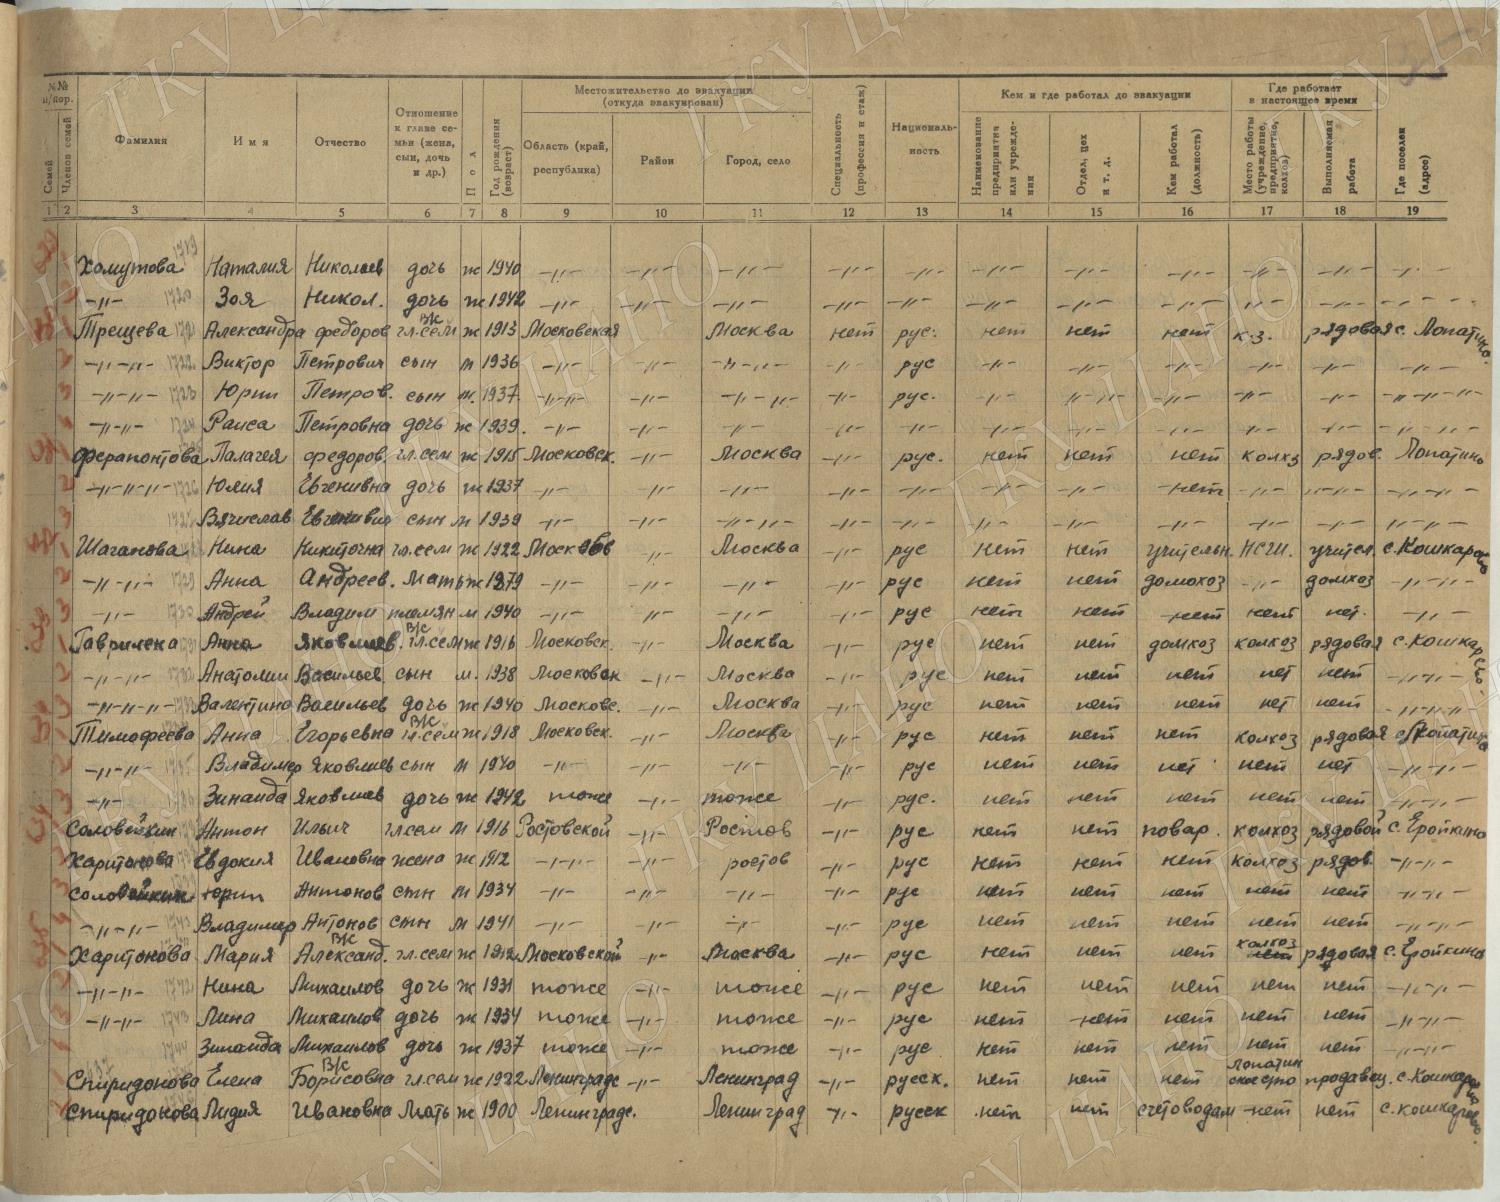 №№ п/пор.
Семей
Членов семей
Фамилия
Имя
Отчество
Отношение к главе семьи (жена, сын, дочь и др.)
Пол
Год рождения (возраст)
Местожительство до эвакуации (откуда эвакуирован)
Область (край, республика)
Район
Город, село
Специальность (профессия и стаж)
Националь-ность
Кем и где работал до эвакуации
Наименование предприятия или учрежде-ния
Отдел, цех и т. д.
Кем работал (должность)
Где работает в настоящее время
Место работы (учреждение, предприятие, колхоз)
Выполняемая работа
Где поселен (адрес)
1 2 3 4 5 6 7 8 9 10 11 12 13 14 15 16 17 18 19
Хомутова Наталия Николаев дочь ж 1940 -"- -"- -"- -"- -"- -"- -"- -"- -"- -"- -"-
-"- Зоя Никол. дочь ж 1942 -"- -"- -"- -"- -"- -"- -"- -"- -"- -"- -"-
Трещева Александра федоров гл.сем в/с ж 1913 Московская Москва нет рус. нет нет нет к-з. рядовая с. Лопатино.
-"-"- Виктор Петрович сын м 1936 -"- -"- -"-"- -"- рус -"- -"- -"- -"- -"-
-"-"- Юрий Петров. сын м. 1937. -"-"- -"- -"-"- -"- рус. -"- -"- -"- -"- -"- -"-"-
-"-"- Раиса Петровна дочь ж 1939. -"- -"- -"- -"- -"- -"- -"- -"- -"- -"- -"-"-
Ферапонтова Палагея федоров. гл.сем ж 1915 Московск. -"- Москва -"- рус. нет нет нет колхз рядов. Лопатино
-"-"-"- Юлия Евгенивна дочь ж 1937 -"- -"- -"- -"- -"- -"- -"- нет -"- -"- -"-"-
Вячеслав Евгеневич сын м 1939 -"- -"- -"-"- -"- -"- -"- -"- -"- -"- -"- -"-"-
Шаганова Нина Никитична гл.сем ж 1922 Москов -"- Москва -"- рус нет нет учительн. НСШ. учител. с.Кошкарово
-"-"- Анна Андреев. мать ж 1879 -"- -"- -"- -"- рус нет нет домохоз -"- домхоз -"-"-
-"- Андрей Владим племян м 1940 -"- -"- -"- -"- рус нет нет нет нет нет. -"-
Гаврилена Анна Яковлиев. гл.сем в/с ж 1916 Московск. Москва -"- рус нет нет домхоз колхоз рядовая с.Кошкарово.
-"-"- Анатолии Васильев сын м. 1938 Московск -"- Москва -"- рус нет нет нет нет нет -"-"-
-"-"-"- Валентина Васильев дочь ж 1940 Московс. -"- Москва -"- рус нет нет нет нет нет -"-"-
Тимофеева Анна Егорьевна гл.сем в/с ж 1918 Московск. -"- Москва -"- рус нет нет нет колхоз рядовая с Лопатино
-"-"- Владимер Яковлиев сын м 1940 -"- -"- -"- -"- рус нет нет нет нет нет -"-"-
-"- Зинаида Яковлиев дочь ж 1942 тоже -"- тоже -"- рус. нет нет нет нет нет -"-"-
Соловейкин Антон Ильич гл.сем м 1916 Ростовской -"- Ростов -"- рус нет нет повар. колхоз рядовой с. Ёройкино
Харитонова Евдокия Ивановна жена ж 1912 -"-"- -"- ростов -"- рус нет нет нет колхоз рядов. -"-"-
Соловейкин Юрии Антонов сын м 1934 -"- -"- -"- -"- рус нет нет нет нет нет -"-"-
-"-"- Владимер Антонов сын м 1941 -"- -"- -"- -"- рус нет нет нет нет нет -"-"-
Харитонова Мария Александ. в/с гл.сем ж 1912 Московской -"- Москва -"- рус нет нет нет колхоз рядовая с. Ёройкино
-"-"- Нина Михаилов дочь ж 1931 тоже -"- тоже -"- рус нет нет нет нет нет -"-"-
-"-"- Лина Михаилов дочь ж 1934 тоже -"- тоже -"- рус нет нет нет нет нет -"-"-
Зинаида Михаилов дочь ж 1937 тоже -"- тоже -"- рус. нет нет нет нет нет -"-"-
Спиридонова Елена Борисовна в/с гл.сем ж 1922 Ленинградс -"- Ленинград -"- русск. нет нет нет Лопатин продавец. с.Кошкарова
Спиридонова Лидия Ивановна мать ж 1900 Ленинградс. Ленинград -"- русск нет нет счетоводам нет нет с.кошкарово.
ГКУ ЦАНО